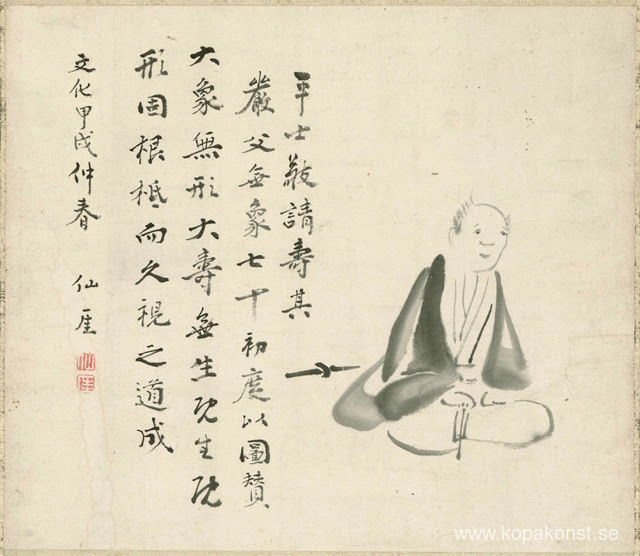 平士敬請壽其
嚴父無象七十初度以圖贊
大象無形大壽無生既生既
形固根柢而久視之道成
文化甲戌仲春
仙厓
仙厓
www.kopakonst.se